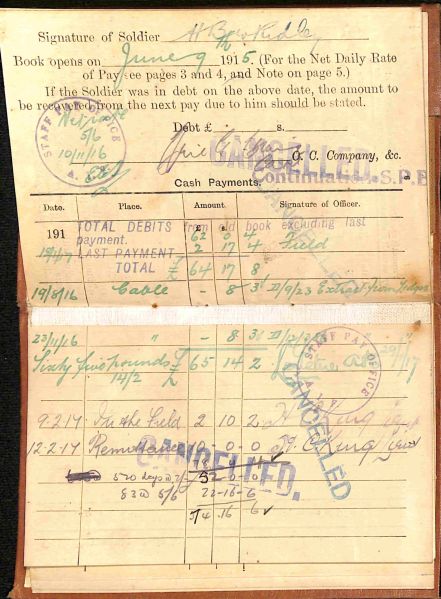 Signature of Soldier
Book opens on June 9 1915. (For the Net Daily Rate
of Pay see pages 3 and 4, and Note on page 5.)
If the Soldier was in debt on the above date, the amount to
be recovered from the next pay due to him should be stated.
Debt £ s.
STAFF PAY OFFICE
Net rate
5/6
10/11/16
A.I.F.
CANCELLED.
O. C. Company, &c.
Continuation S.P.B
Cash Payments.
Date. Place. Amount. Signature of Officer.
191 TOTAL DEBITS from old book excluding last
payment. 62 0 4
LAST PAYMENT 2 17 4 Field
TOTAL £ 64 17 8
19/8/16 Cable - 8 3 II/9/23 Extract from
23/11/16 " - 8 3
Sixty five pounds £ 65 14 2
14/2
STAFF PAY OFFICE
CANCELLED
9.2.17 In the Field 2 10 2
12.2.17 Remittance 10-0-0
CANCELLED.
520 days @ 2/- 52-0-0
83 @ 5/6 22-16-6
74 16 6